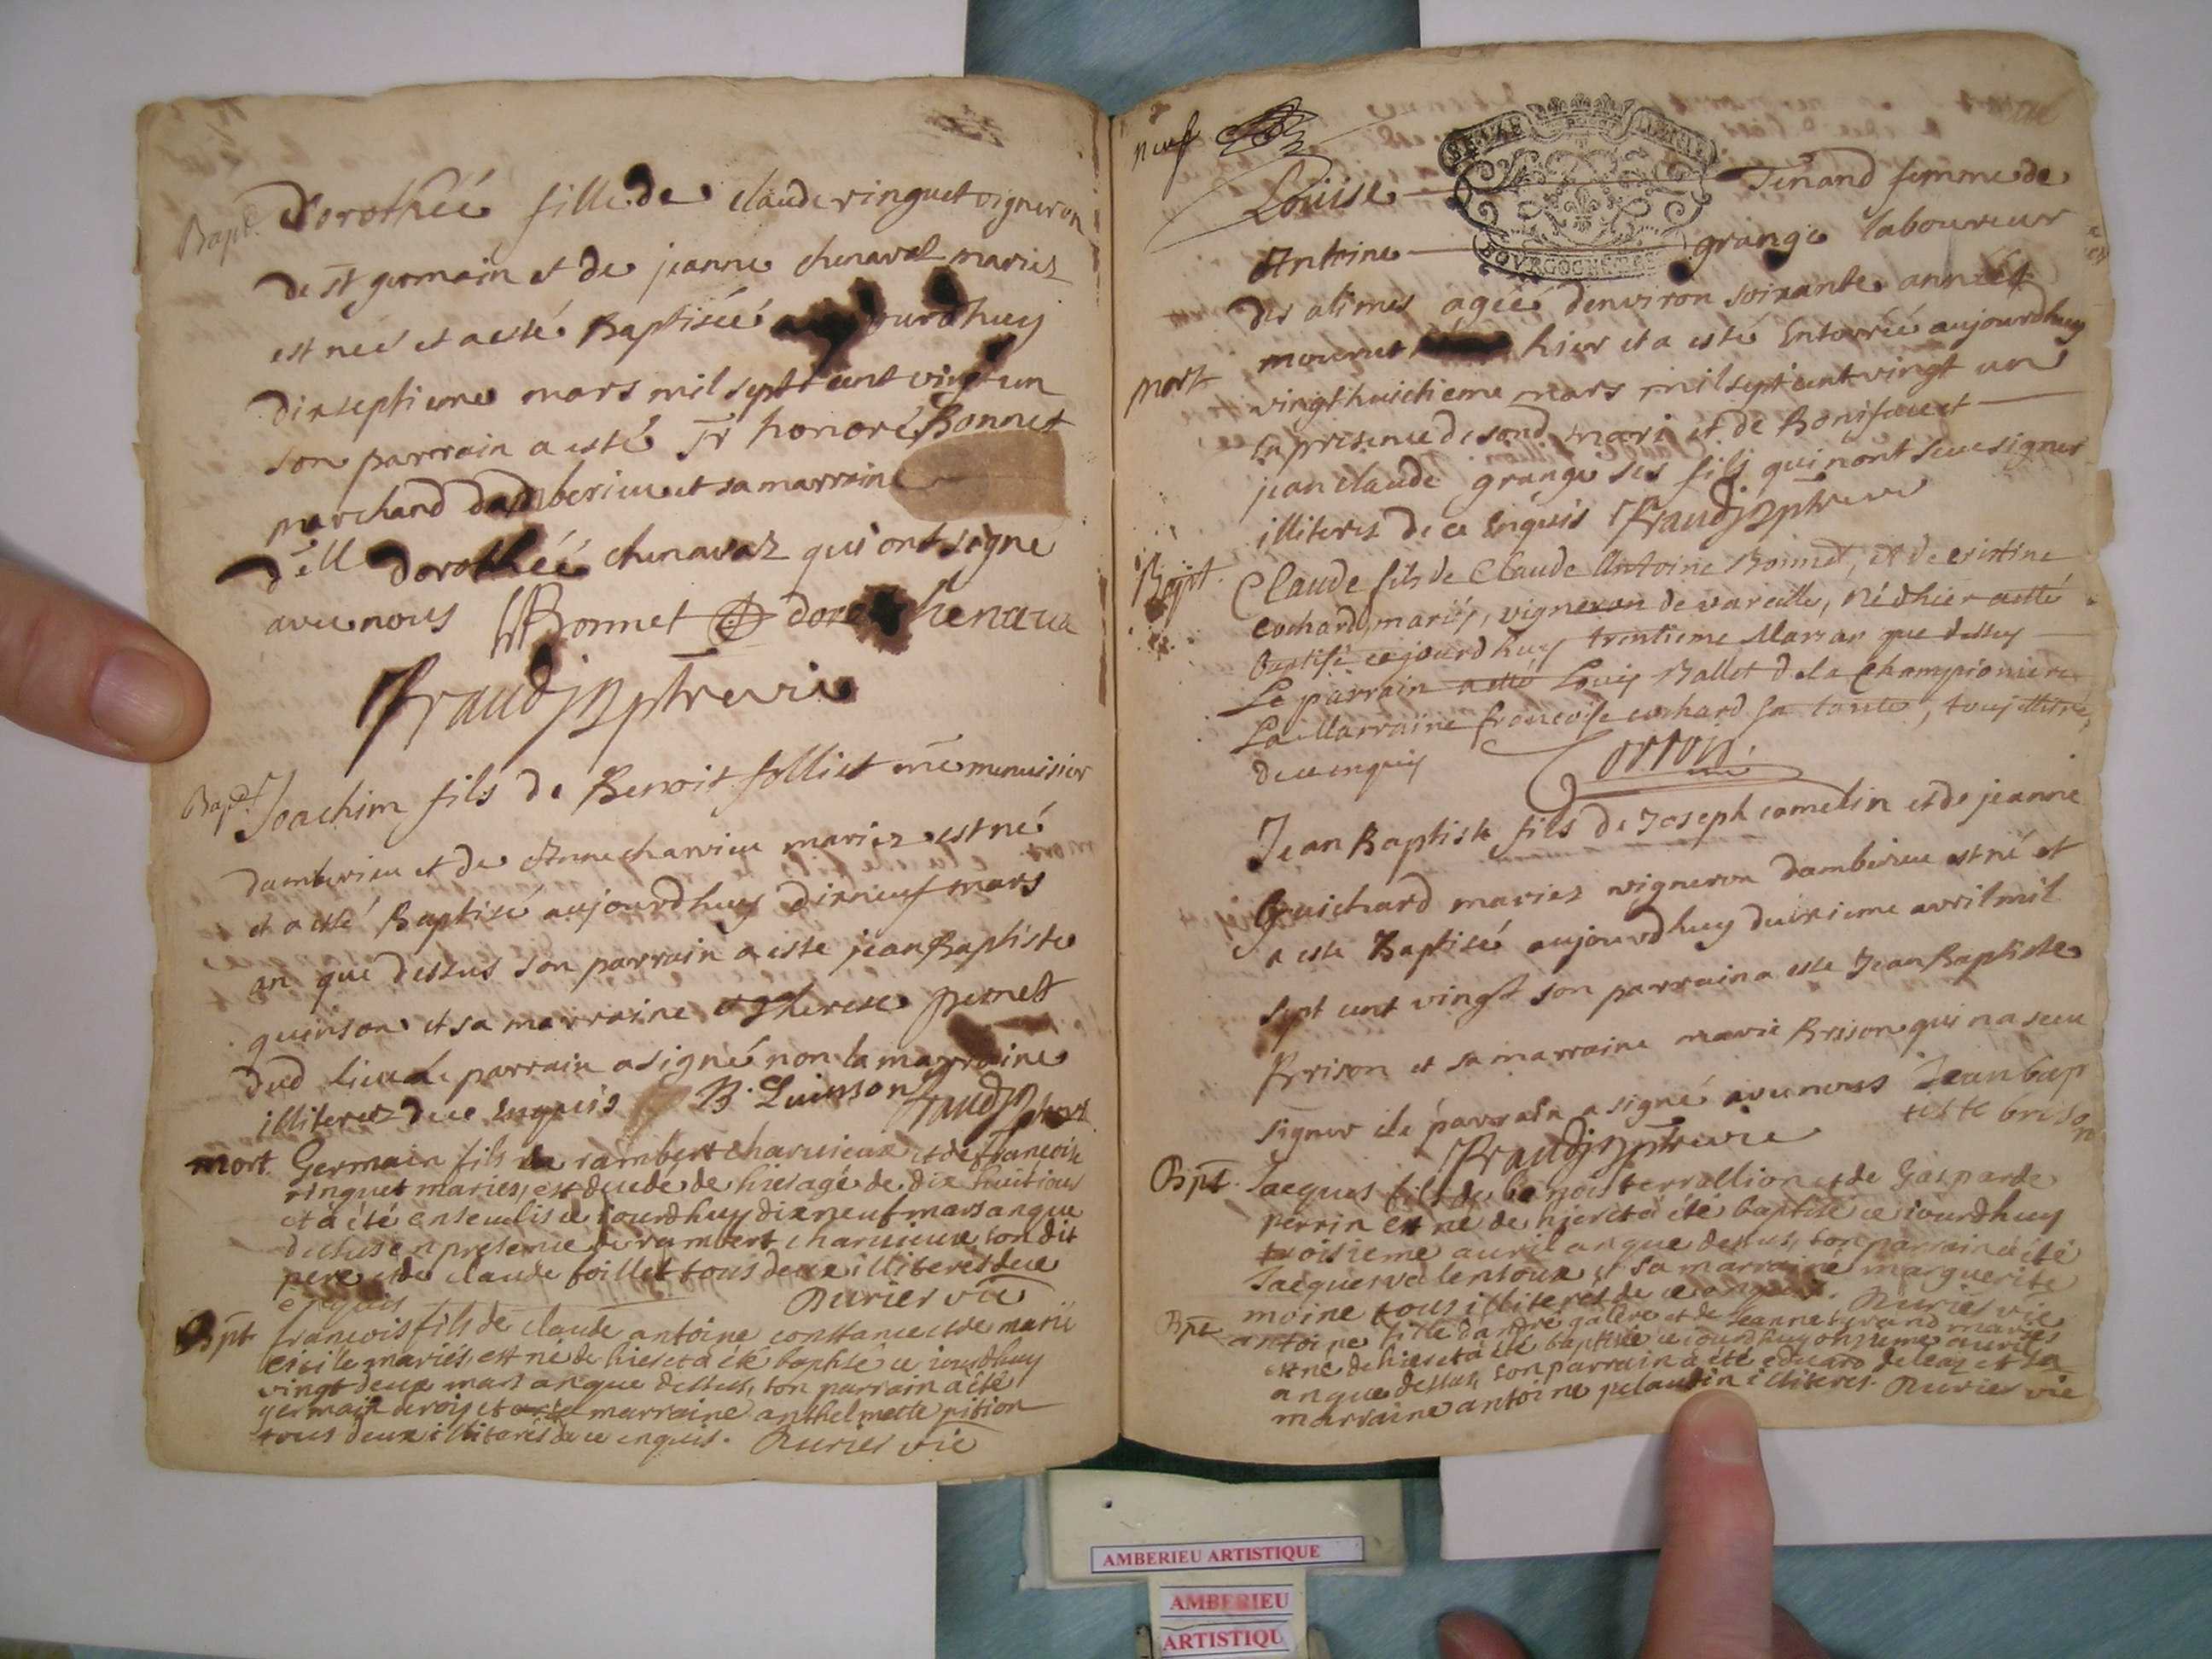 Bapt. Dorothéé fille de claude ringuet vigneron
de st germain et de jeanne chenaval mariez
est neé et a esté Baptiséé aujourdhuy
dixseptieme mars mil sept cent vingt un
son parrain a esté Sr honoré Bonnet
marchand damberieu et sa marraine
dell dorothéé chenavaz qui ont signé
avec nous Bonnet doro chenaua
fraudj
Bapt. Joachim fils de Benoit folliet me menuisier
damberieu et de Anne charvieu mariez est né
et a esté Baptisé aujourdhuy dixneuf mars
an que dessus son parrain a este jean Baptiste
quinson et sa marraine therese pernet
dud lieu le parrain a signé non la marraine
illiterez de ce enquis B. Quinson fraudj
mort. Germain fils de rambert charuieux et de francoise
ringuet mariés, est decedé de hier agé de dix huit jours
et a été enseueli ce iourdhuy dix neuf mars an que
dessus en presence de rambert charuieux son dit
pere et de claude foillet tous deux illiterés de ce
enquis Rurier vic
Bpt francois fils de claude antoine constance et de marie
mariés, est né de hier et a été baptisé ce iourdhuy
vingt deux mars an que dessus, son parrain a été
germain deroy et marraine anthelmette pition
tous deux illiterés de ce enquis. Rurier vic
neuf
SEIZE DENIERS
BOURGOGNE
Louise Tenand femme de
Antoine grange laboureur
des alimes ageé denviron soixante annéés
mort mourut hier et a esté Enterréé aujourdhuy
vingthuictieme mars mil sept cent vingt un
en presence de sond mari et de Boniface et
jean claude grange ses fils qui nont sceu signer
illiterez de ce enquis fraudj
Bapt. Claude fils de Claude Antoine Bonnet, et de cristine
cochard, mariés, vigneron de vareille, né dhier a esté
Baptisé aujourdhuy trentieme Mars an que dessus
Le parrain a esté Louis Ballet de la Championiere
La Marraine francoise cochard sa tante, tous illiterés
de ce enquis
Jean Baptiste fils de Joseph comelin et de jeanne
Guichard mariez vigneron damberieu est né et
a este Baptisé aujourdhuy deuxieme avril mil
sept cent vingt son parrain a este Jean Baptiste
Brison et sa marraine marie Brison qui na sceu
signer et le parrain a signé avec nous Jean bap
tiste brison
fraudj
Bpt. Jacques fils de benoit terrallion et de Gasparde
perrin est né de hier et a été baptisé ce iourdhuy
troisieme auril an que dessus, son parrain a été
Jacques valensoux et sa marraine marguerite
moine tous illiterés de ce enquis. Rurier vic
Bpt antoine fille dandré galere et de Jeanne tenand mariés
est né de hier et a été baptisée ce iourdhuy onzieme auril
an que dessus, son parrain a été eduard deleaz et sa
marraine antoine pelaudin illiteres. Rurier vic
AMBERIEU ARTISTIQUE
AMBERIEU
ARTISTIQU